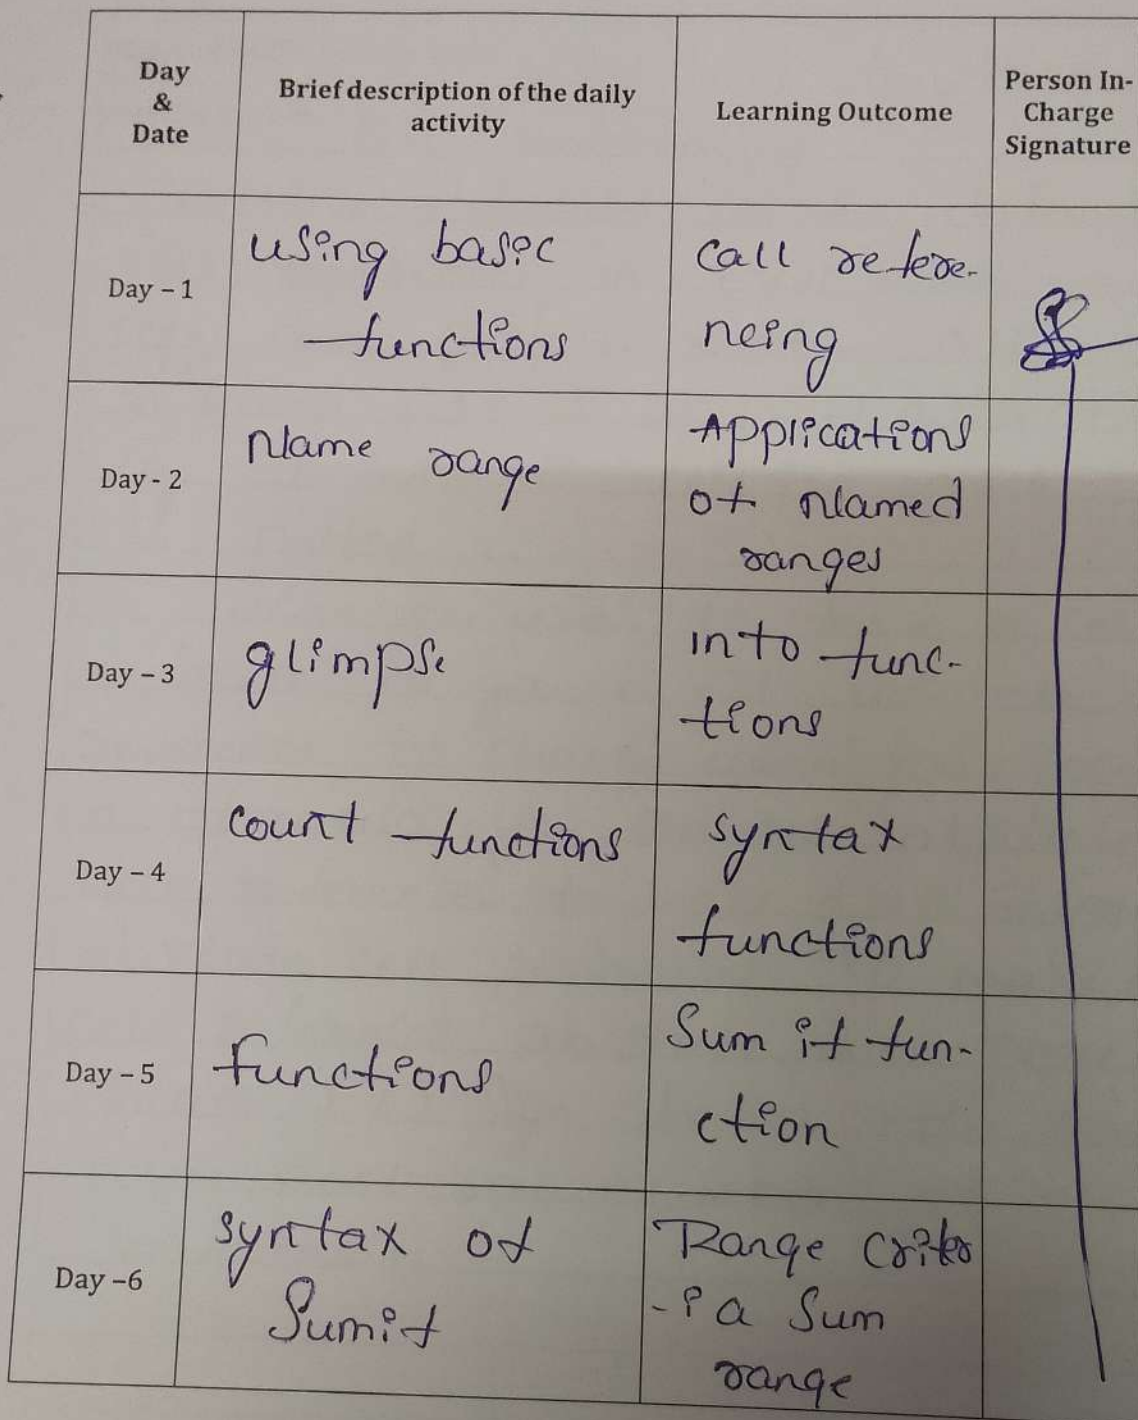 Day
&
Date
Brief description of the daily
activity
Learning Outcome
Person In-
Charge
Signature
Day – 1
using basic
functions
Call refere-
ncing
Day - 2
Name range
Applications
of Named
ranges
Day – 3
glimpse
into func-
tions
Day – 4
count functions
syntax
functions
Day – 5
functions
Sum if fun-
ction
Day –6
syntax of
Sumif
Range criter
-ia Sum
range